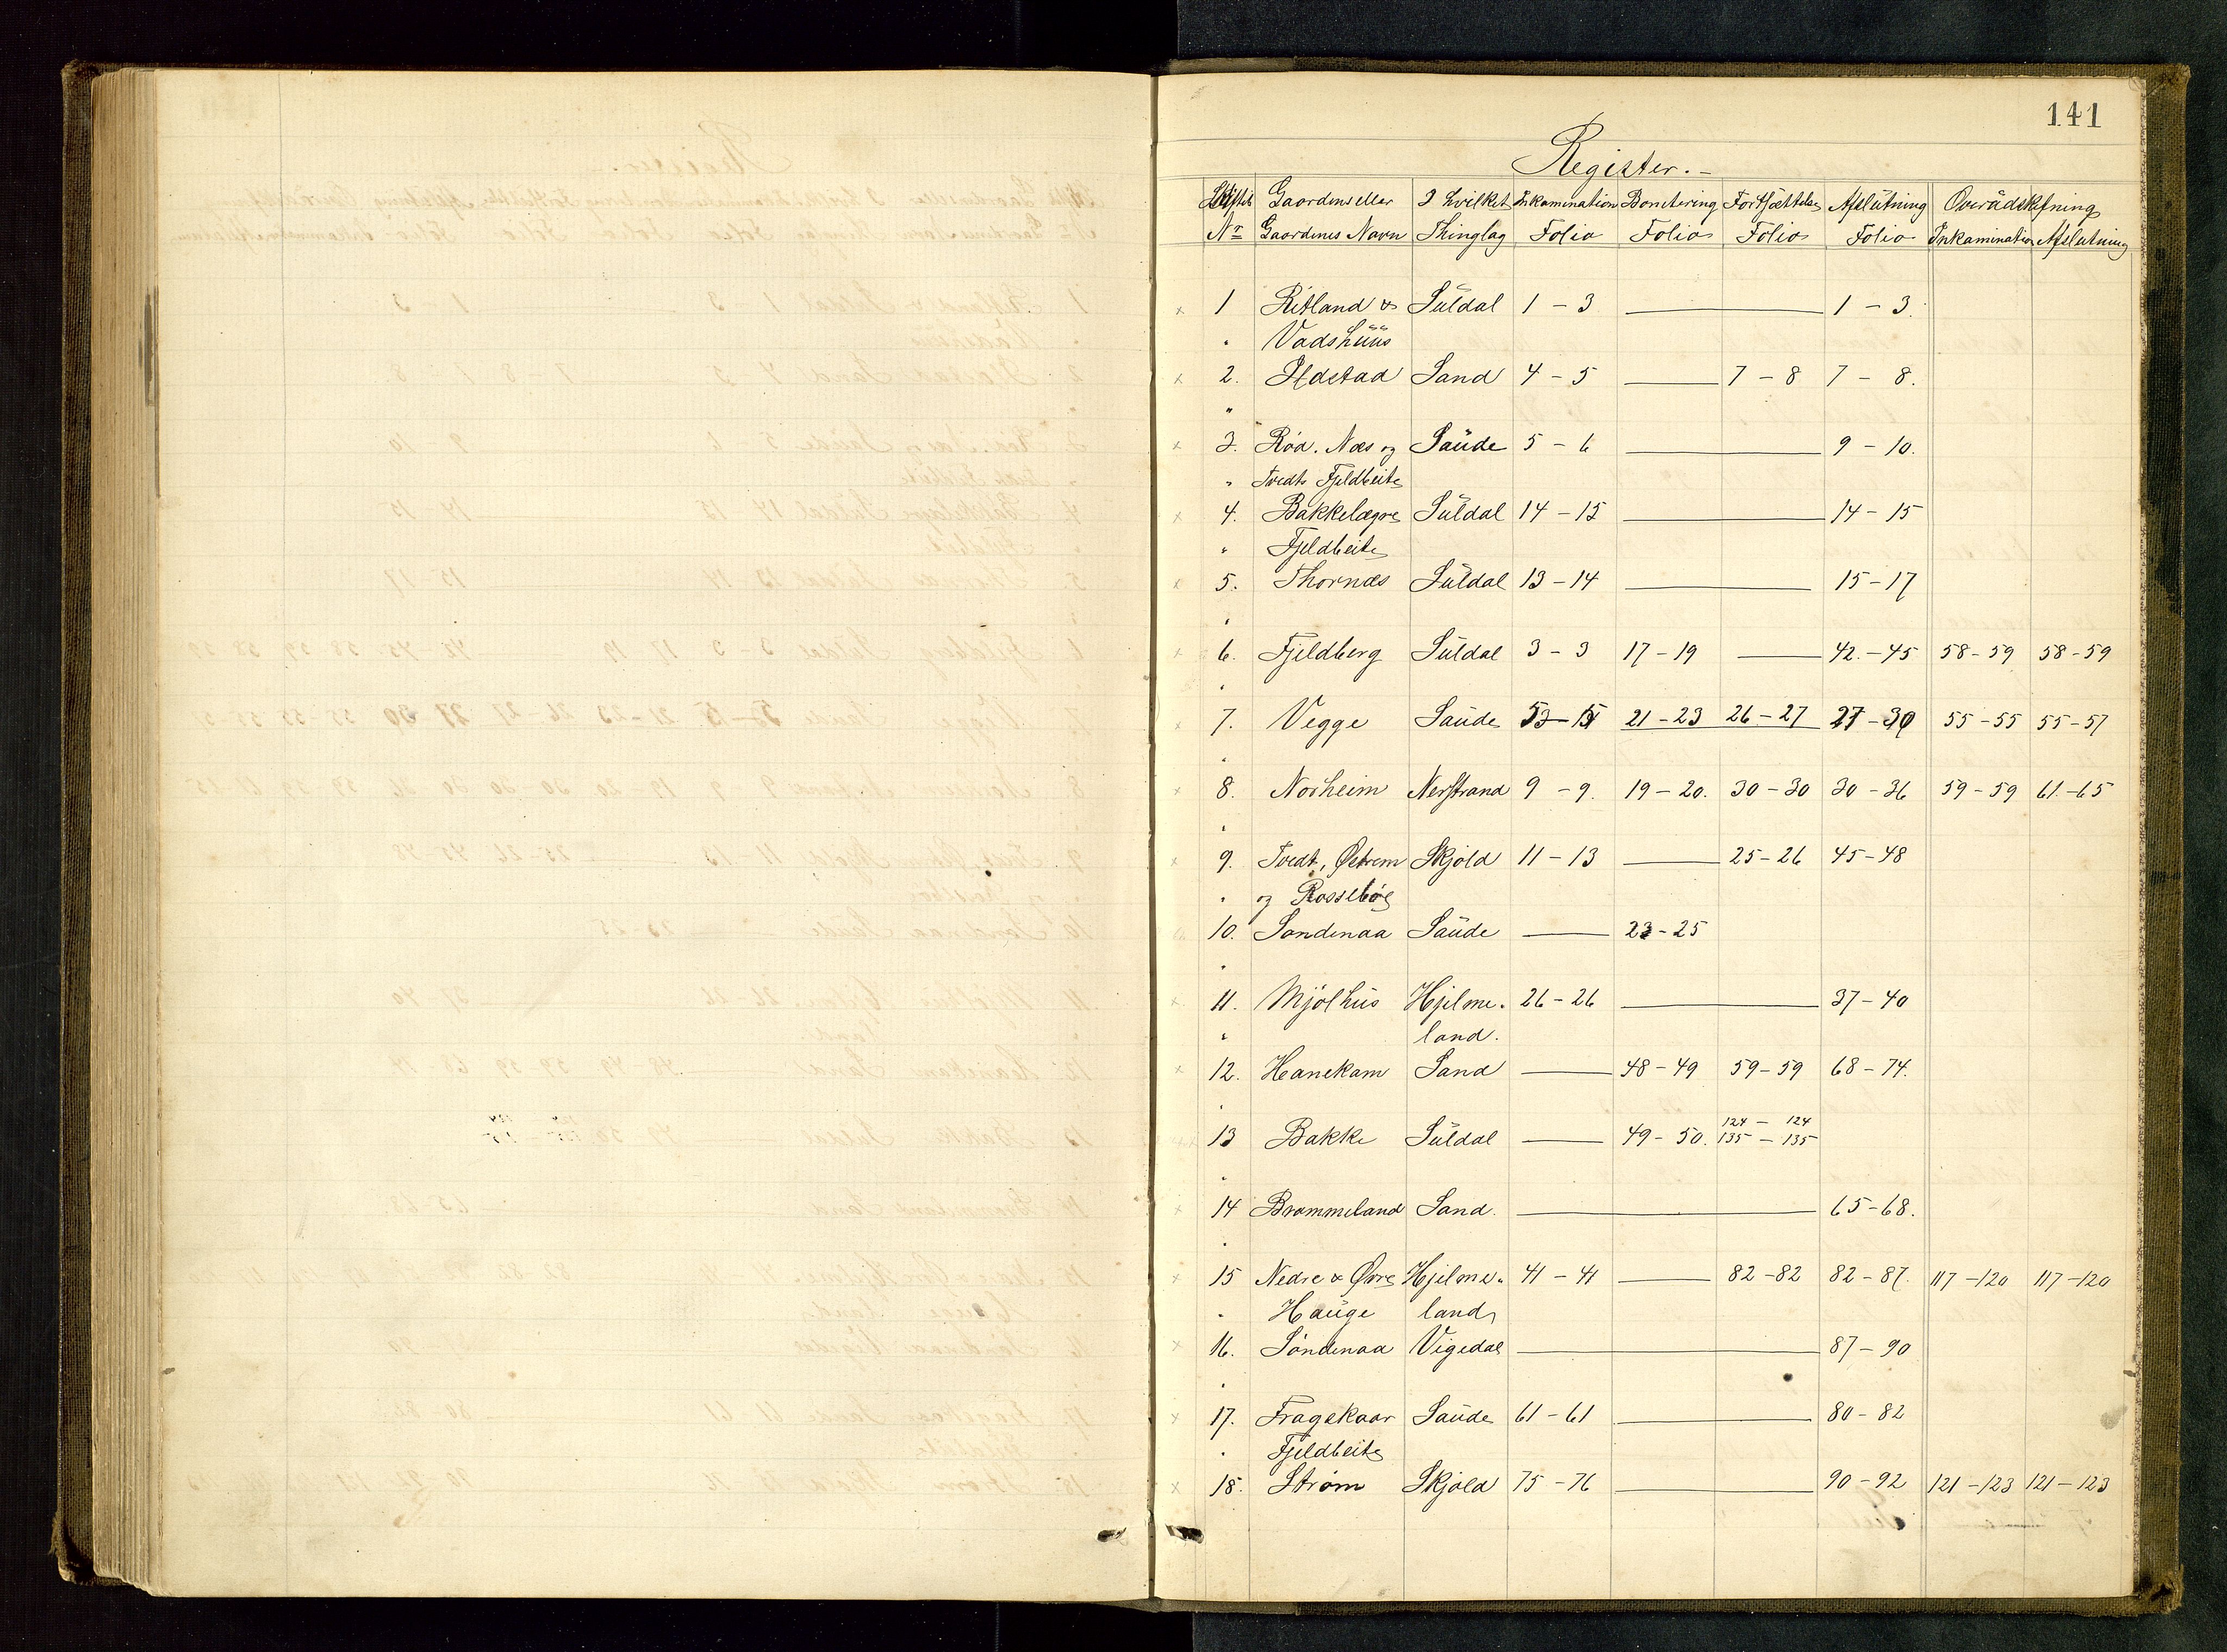 141
Register.-
Skiftets Gaardens eller I hvilket Inkamination Bonitering Fortsættelse Afslütning Overüdskiftning
No Gaardenes Navn Thinglag Folio Folio Folio Folio Inkamination Afslutning
× 1 Ritland & Süldal 1 - 3 — 1 - 3.
" Vadshüüs
× 2. Ilstad Sand 4 - 5 — 7 - 8 7 - 8.
"
× 3. Röd. Næs og Saüde 5 - 6 — 9 - 10.
" Tvedts Fjeldbeite
× 4. Bakkelægre Süldal 14 - 15 — 14 - 15
" Fjeldbeite
× 5. Thornæs Süldal 13 - 14 — 15 - 17
"
× 6. Fjeldberg Süldal 3 - 3 17 - 19 — 42. - 45 58 - 59 58 - 59
"
× 7. Vegge Saüde 53 - 15 21 - 23 26 - 27 27 - 30 55 - 55 55 - 57
"
× 8. Norheim Nerstrand 9 - 9. 19 - 20. 30 - 30 30 - 36 59 - 59 61. - 65
"
× 9. Tvedt, Østrem Skjold 11 - 13 — 25 - 26 45 - 48
" og Rossebö
10. Sandenaa Saüde — 23 - 25
"
× 11. Mjölhüs Hjelme- 26 - 26 — 37 - 40
" land.
× 12. Hanekam Sand — 48 - 49 59 - 59 68 - 74.
"
124 - 124
13 Bakke Süldal — 49 - 50. 135 - 135
"
× 14 Brommeland Sand. — 65 - 68.
"
× 15 Nedre & Øvre Hjelme- 41 - 41 — 82 - 82 82 - 87. 117 - 120 117 - 120
" Haüge land
× 16. Söndenaa Vigedal — 87 - 90
"
× 17. Fragskaar Saüde 61 - 61 — 80 - 82
" Fjeldbeite
× 18. Ström Skjold 75 - 76 — 90 - 92 121 - 123 121 - 123